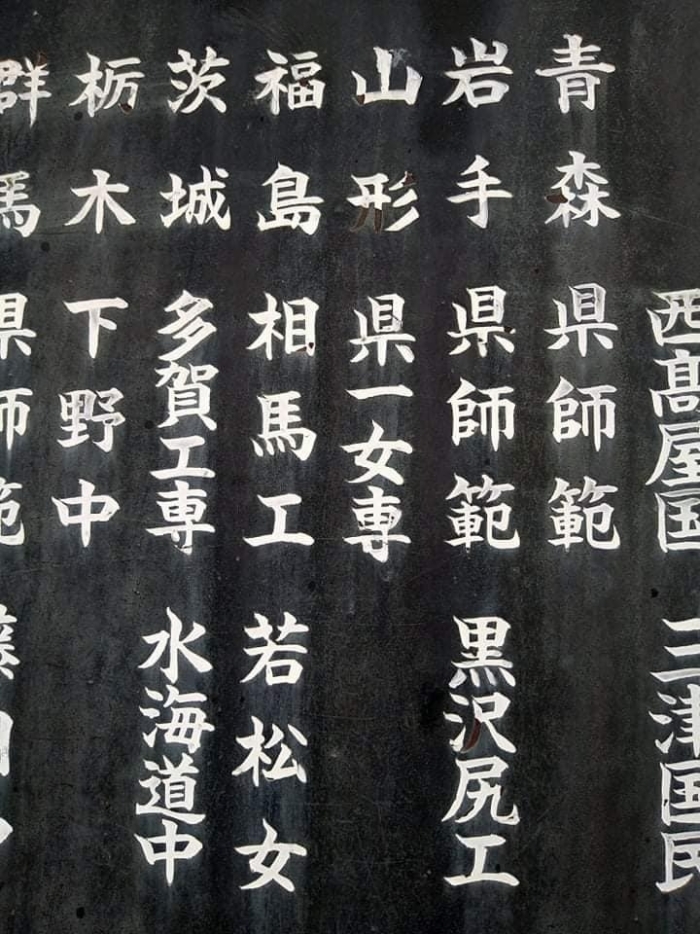 西髙屋国 三津国民
青森 県師範
岩手 県師範 黒沢尻工
山形 県一女専
福島 相馬工 若松女
茨城 多賀工専 水海道中
栃木 下野中
群馬 県師範